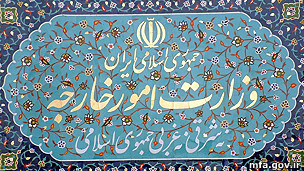 جمهوری اسلامی ایران
وزارت امور خارجه
نه شرقی نه غربی جمهوری اسلامی
mfa.gov.ir